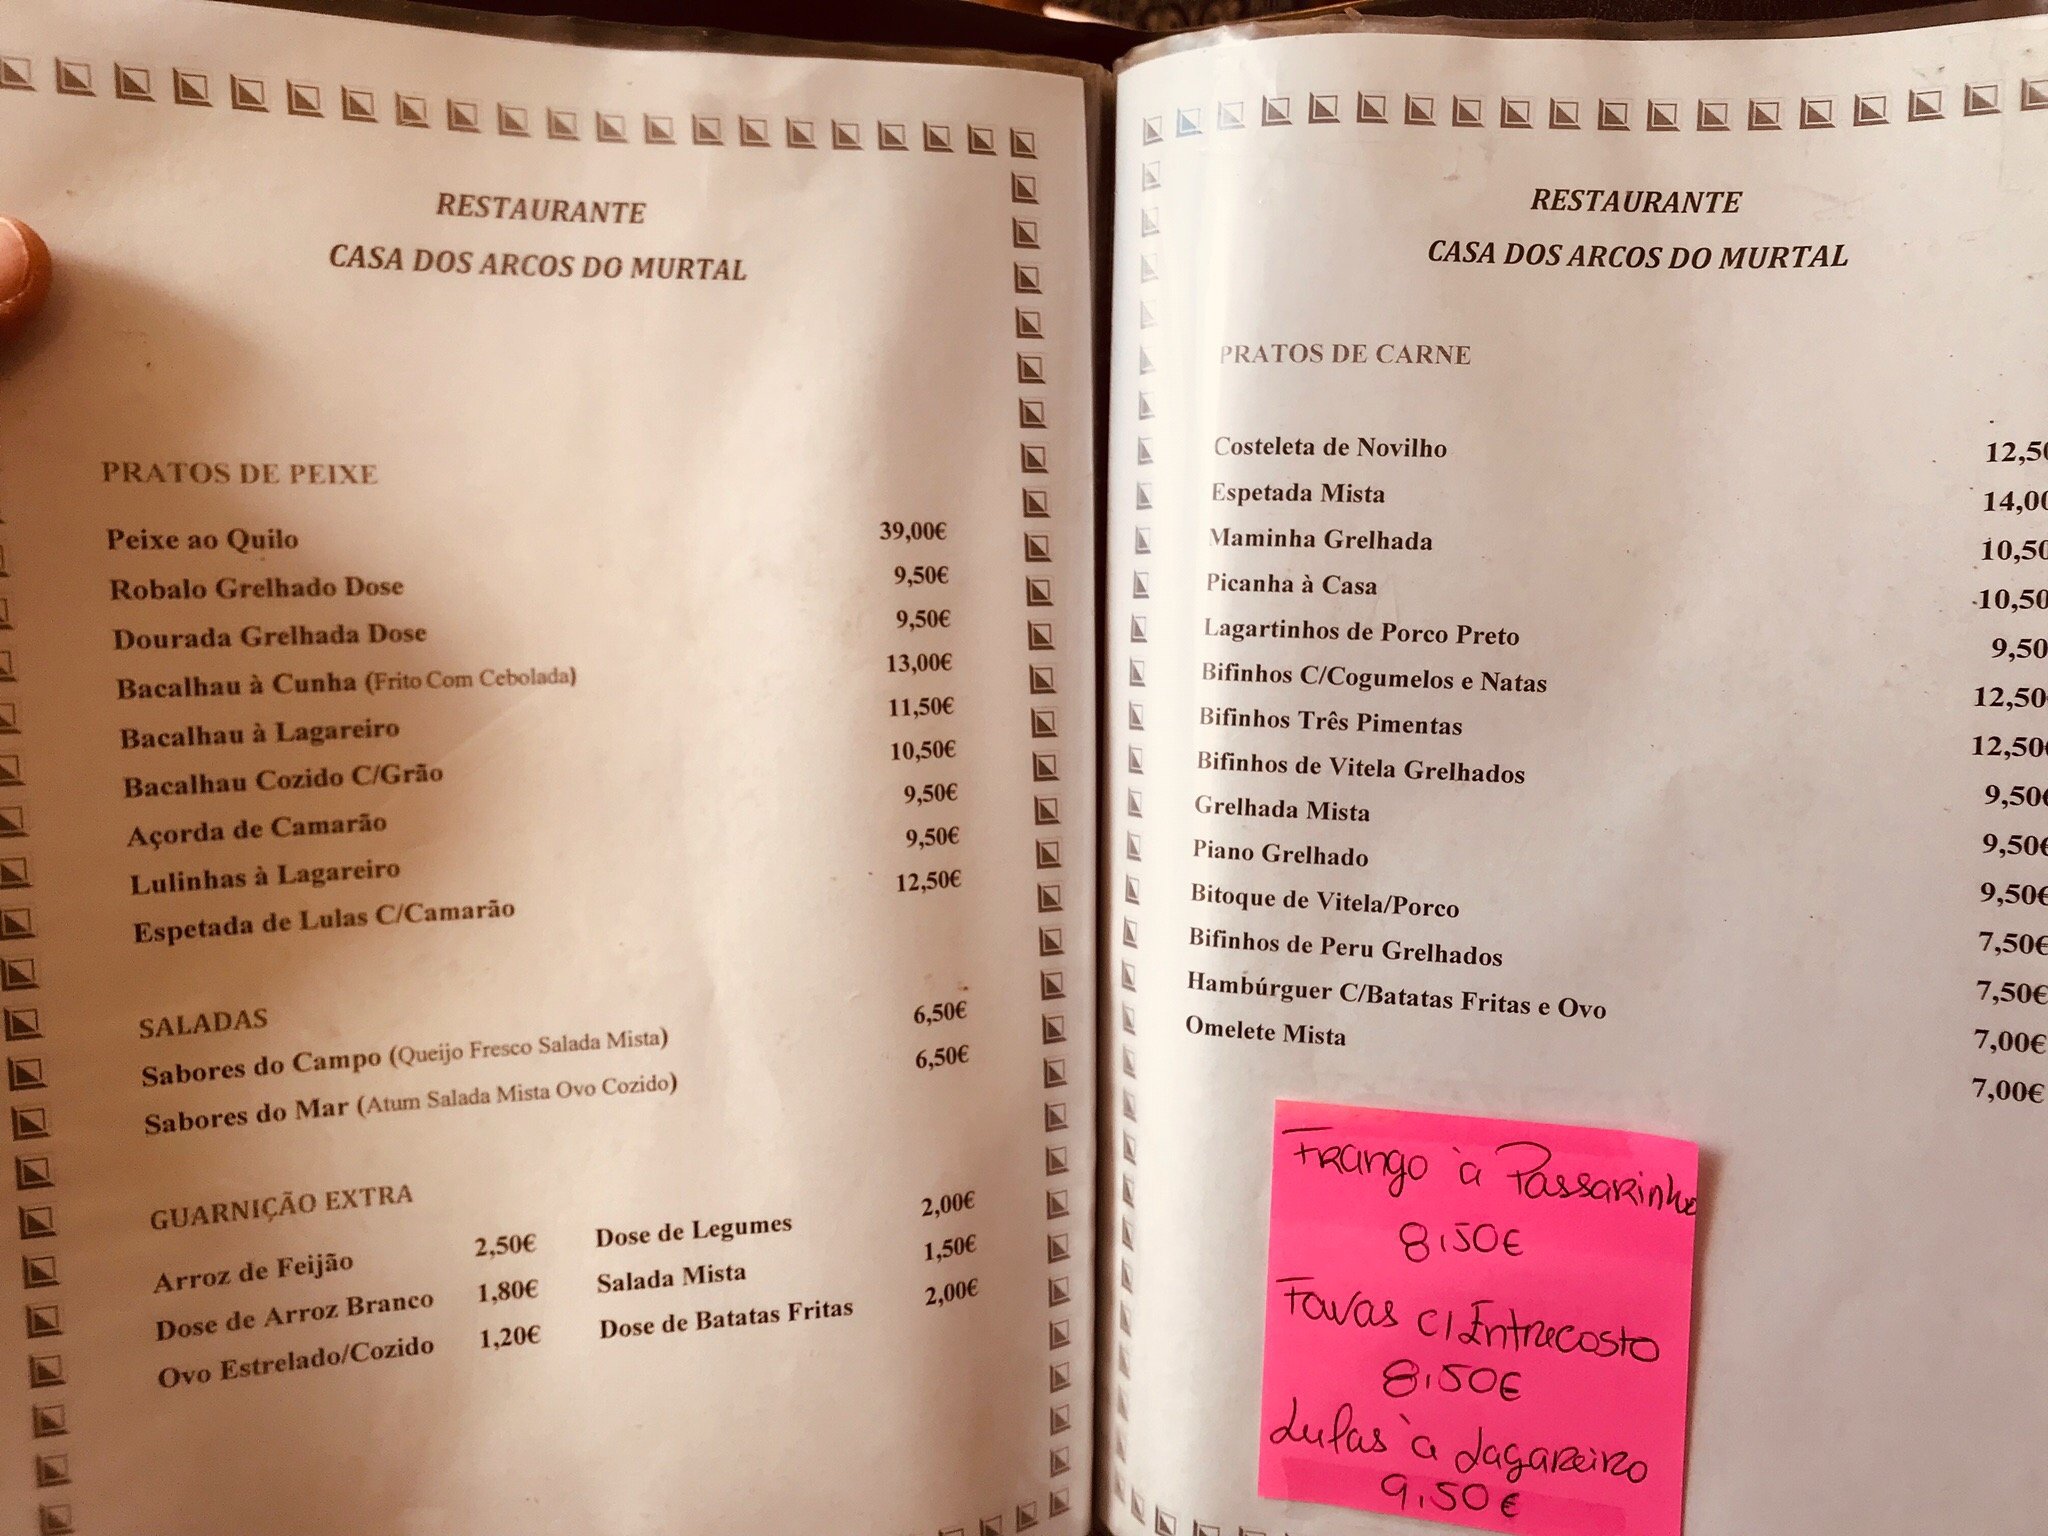 RESTAURANTE
CASA DOS ARCOS DO MURTAL
PRATOS DE PEIXE
Peixe ao Quilo 39,00€
Robalo Grelhado Dose 9,50€
Dourada Grelhada Dose 9,50€
Bacalhau à Cunha (Frito Com Cebolada) 13,00€
Bacalhau à Lagareiro 11,50€
Bacalhau Cozido C/Grão 10,50€
Açorda de Camarão 9,50€
Lulinhas à Lagareiro 9,50€
Espetada de Lulas C/Camarão 12,50€
SALADAS
Sabores do Campo (Queijo Fresco Salada Mista) 6,50€
Sabores do Mar (Atum Salada Mista Ovo Cozido) 6,50€
GUARNIÇÃO EXTRA
Arroz de Feijão 2,50€ Dose de Legumes 2,00€
Dose de Arroz Branco 1,80€ Salada Mista 1,50€
Ovo Estrelado/Cozido 1,20€ Dose de Batatas Fritas 2,00€
RESTAURANTE
CASA DOS ARCOS DO MURTAL
PRATOS DE CARNE
Costeleta de Novilho 12,50
Espetada Mista 14,00
Maminha Grelhada 10,50
Picanha à Casa 10,50
Lagartinhos de Porco Preto 9,50
Bifinhos C/Cogumelos e Natas 12,50
Bifinhos Três Pimentas 12,50€
Bifinhos de Vitela Grelhados 9,50€
Grelhada Mista 9,50€
Piano Grelhado 9,50€
Bitoque de Vitela/Porco 7,50€
Bifinhos de Peru Grelhados 7,50€
Hambúrguer C/Batatas Fritas e Ovo 7,00€
Omelete Mista 7,00€
Frango à Passarinho
8,50€
Favas c/Entrecosto
8,50€
Lulas à Lagareiro
9,50€